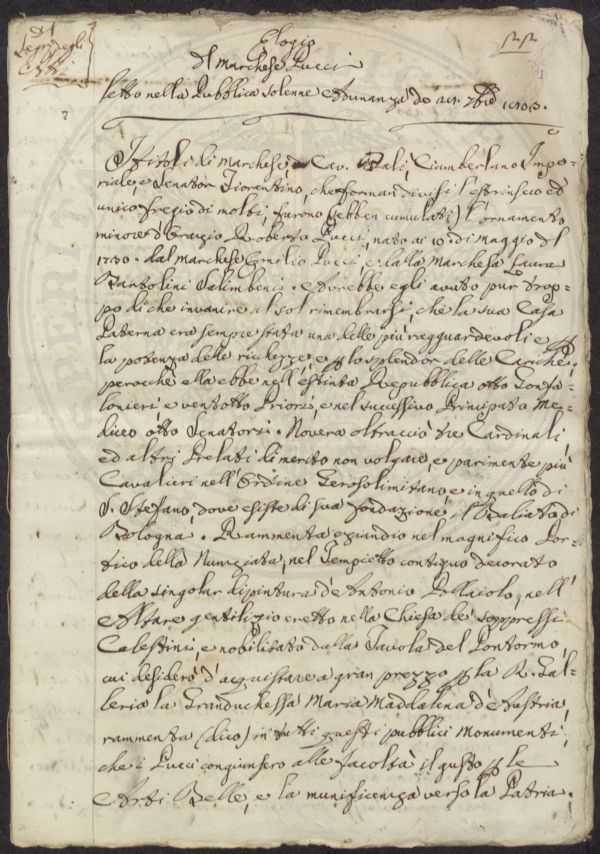 Del
Sig.r degli
Elogio
del Marchese Pucci
letto nella Pubblica solenne Adunanza de
I titoli di Marchese, di Cav. Balì, Ciamberlano Impe-
riale, e Senator Fiorentino, che forman divisi l'estrinseco ed
unico fregio di molti, furono (sebben cumulati) l'ornamento
minore d'Orazio Roberto Pucci, nato ai 10 di Maggio del
1730. dal Marchese Emilio Pucci, e dalla Marchesa Laura
Bartolini Salimbeni. Avrebbe egli avuto pur trop-
po di che invanire al sol rimembrarsi, che la sua Casa
Paterna era sempre stata una delle più ragguardevoli e p
la potenza delle richezze, e p lo splendor delle Cariche,
perocchè ella ebbe nell'estinta Repubblica otto Gonfa-
lonieri e ventotto Priori, e nel successivo Principato Me-
diceo otto Senatori. Novera oltracciò tre Cardinali,
ed altri Prelati di merito non volgare, e parimente più
Cavalieri nell'Ordine Gerosolimitano e in quello di
S. Stefano, dove esiste di sua fondazione il Baliato di
Bologna. Rammenta eziandio nel magnifico Por-
tico della Nunziata, nel Tempietto contiguo decorato
della singolar dipintura d'Antonio Pollaiolo, nell'
Altare gentilizio eretto nella Chiesa de' soppressi
Celestini e nobilitato dalla Tavola del Pontormo,
cui desiderò d'acquistare a gran prezzo p la R. Gal-
leria la Granduchessa Maria Maddalena d'Austria,
rammenta (dico) in tutti questi pubblici monumenti,
che i Pucci congiunsero alle facoltà il gusto p le
Arti Belle, e la munificenza verso la Patria.